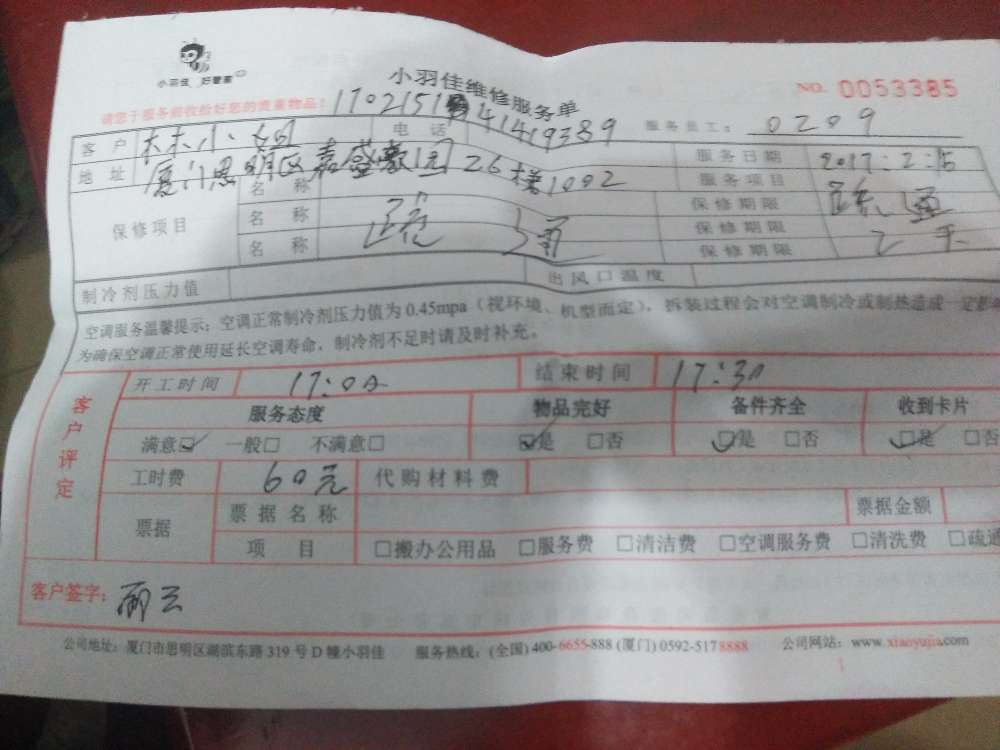 小羽佳 好管家
小羽佳维修服务单
NO. 0053385
请您于服务前收捡好您的贵重物品！
客户 林小姐 电话 服务员工： 0209
地址 厦门思明区嘉盛豪园26楼1002 服务日期 2017：2：15
保修项目 名称 服务项目 疏通
名称 疏通 保修期限
名称 保修期限
保修期限
制冷剂压力值 出风口温度
空调服务温馨提示：空调正常制冷剂压力值为 0.45mpa（视环境、机型而定），拆装过程会对空调制冷或制热造成一定影
为确保空调正常使用延长空调寿命，制冷剂不足时请及时补充。
客户评定
开工时间 17:00 结束时间 17:30
服务态度 物品完好 备件齐全 收到卡片
满意☑ 一般□ 不满意□ ☑是 □否 ☑是 □否 ☑是 □否
工时费 60元 代购材料费
票据 票据名称 票据金额
项目 □搬办公用品 □服务费 □清洁费 □空调服务费 □清洗费 □疏通
客户签字：
公司地址：厦门市思明区湖滨东路 319 号 D 幢小羽佳 服务热线：(全国) 400-6655-888 (厦门) 0592-5178888 公司网站：www.xiaoyujia.com